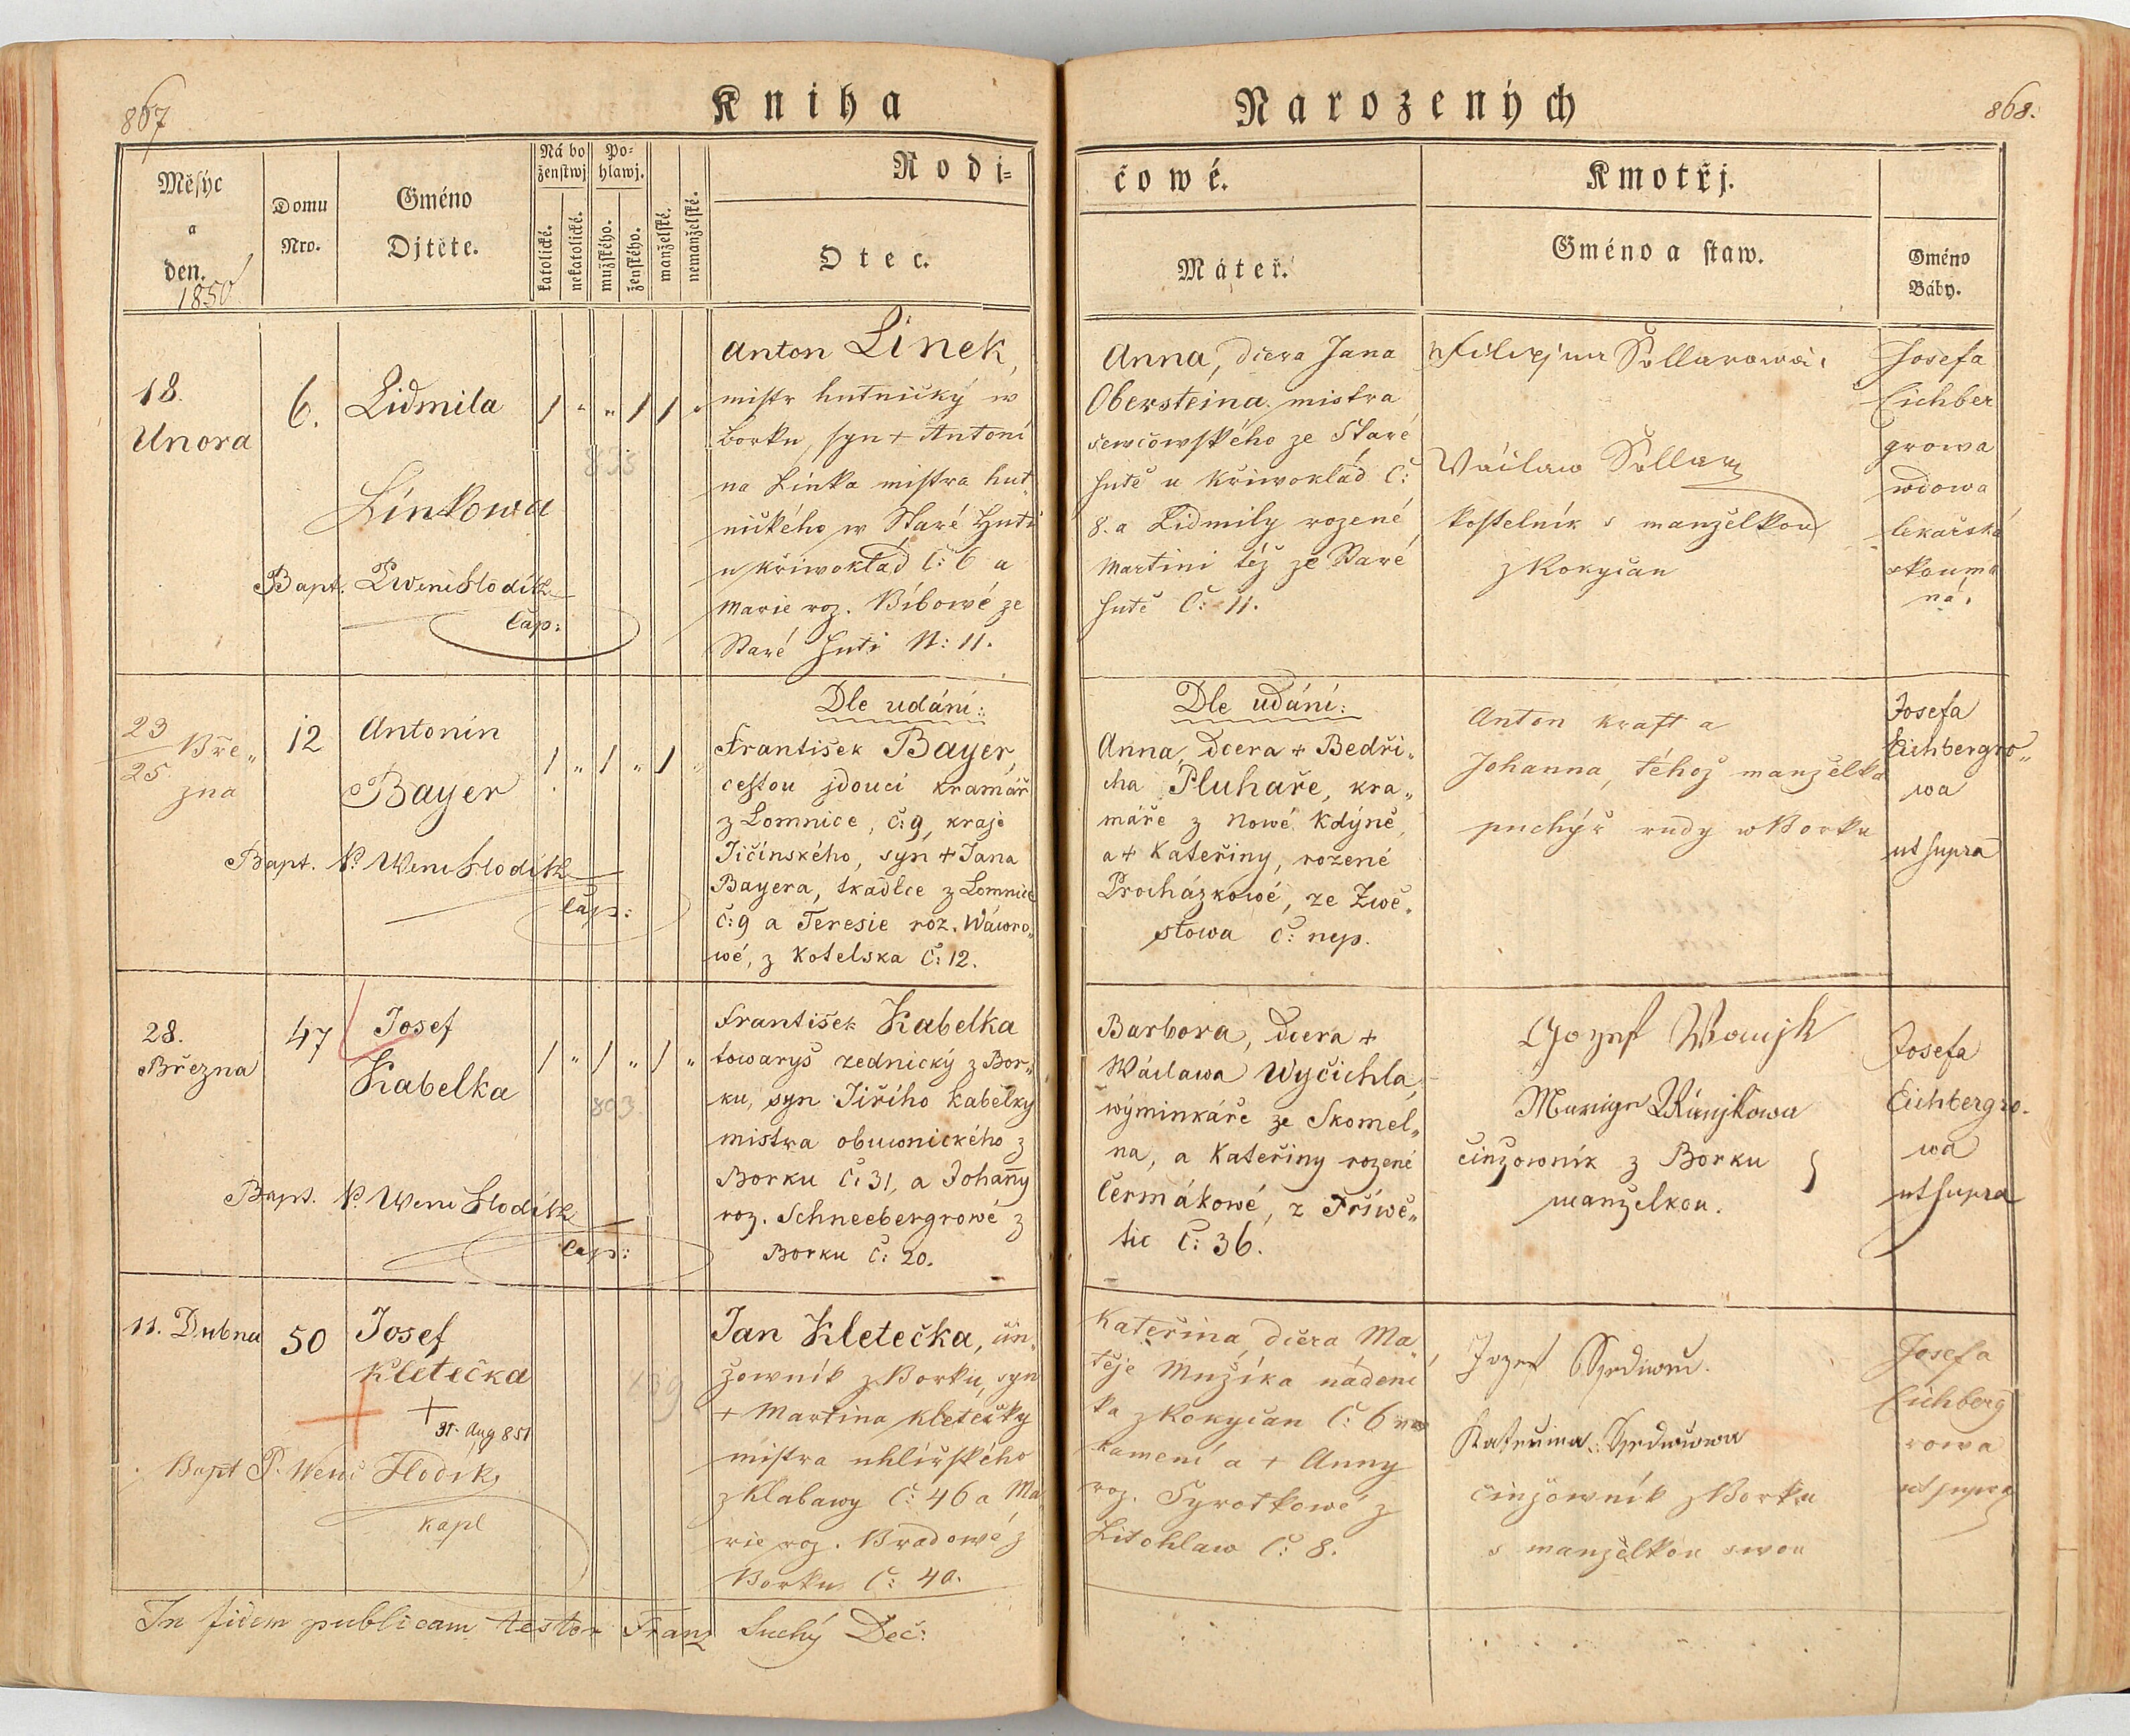 867
Kniha
Narozených
868.
Měsýc
a
den.
1850
Domu
Nro.
Gméno
Djtěte.
Nábo
ženstwj
katolické.
nekatolické.
Po=
hlawj.
mužského.
ženského.
manželské.
nemanželské.
Rodi=
Otec.
čowé.
Máteř.
Kmotřj.
Gméno a staw.
Gméno
Báby.
18.
Unora
6.
Lidmila
Línkowa
Bapt.
Cap:
1 " " 1 1 "
Anton Linek,
mistr hutnický w
Borku, syn + Antoní
na Linka mistra hut
nického w Staré Huti
u Křiwoklád Č: 6 a
Marie roz. Bíbowé ze
Staré Huti N: 11.
Anna, dcera Jana
Obersteina mistra
šewcowského ze Staré
Hutě u Křiwoklád Č:
8. a Lidmily rozené
Martini též ze Staré
Hutě Č: 11.
Václaw
kostelník s manželkou
z Rokycan
Josefa
Eichber
growa
wdowa
lékařská
zkouma
ná.
23
25
Bře„
zna
12
Antonín
Bayer
Bapt. P. Wenc Hlodík
Cap:
1 " 1 " 1 "
Dle udání:
František Bayer,
cestou jdoucí kramář
z Lomnice, č: 9, kraje
Jičínského, syn + Jana
Bayera, tkadlce z Lomnice
č: 9 a Teresie roz. Wáwro„
wé, z Kotelska Č: 12.
Dle udání:
Anna, dcera + Bedři„
cha Pluhaře, kra„
máře z Nowé Kdýně,
a + Kateřiny, rozené
Procházkowé, ze Zwě„
stowa Č: nep.
Anton Kraft a
Johanna, téhož manželka
puchýř rudy w Borku
Josefa
Eichbergro„
wa
ut supra
28.
Března
47
Josef
Kabelka
Bapt. P. Wenc Hlodík
Cap:
1 " 1 " 1 "
803
František Kabelka
towaryš zednický z Bor„
ku, syn Jiřího Kabelky
mistra obuwnického z
Borku Č: 31, a Johanny
roz. Schneebergrowé z
Borku Č: 20.
Barbora, dcera +
Wáclawa Wyčichla,
wýminkáře ze Skomel„
na, a Kateřiny rozené
Čermákowé, z Příwě„
tic Č: 36.
činžowník z Borku
manželkou.
Josefa
Eichbergro„
wa
ut supra
11. Dubna
50
Josef
Kletečka
+
31. Aug 851
Bapt P. Wenc Hlodík,
kapl
Jan Kletečka, čin„
žowník z Borku, syn
+ Martina Kletečky
mistra uhlířského
z Klabawy Č: 46 a Ma„
rie roz. Bradowé z
Borku Č: 40.
Kateřina, dcera Ma„
těje Mužíka nádení
ka z Rokycan Č: 6 na
kameni a + Anny
roz. Syrotkowé z
Litohlaw Č: 8.
činžowník z Borku
s manželkou swou
Josefa
Eichberg
rowa
ut supra
In fidem publicam testor Franz Suchý Deč: